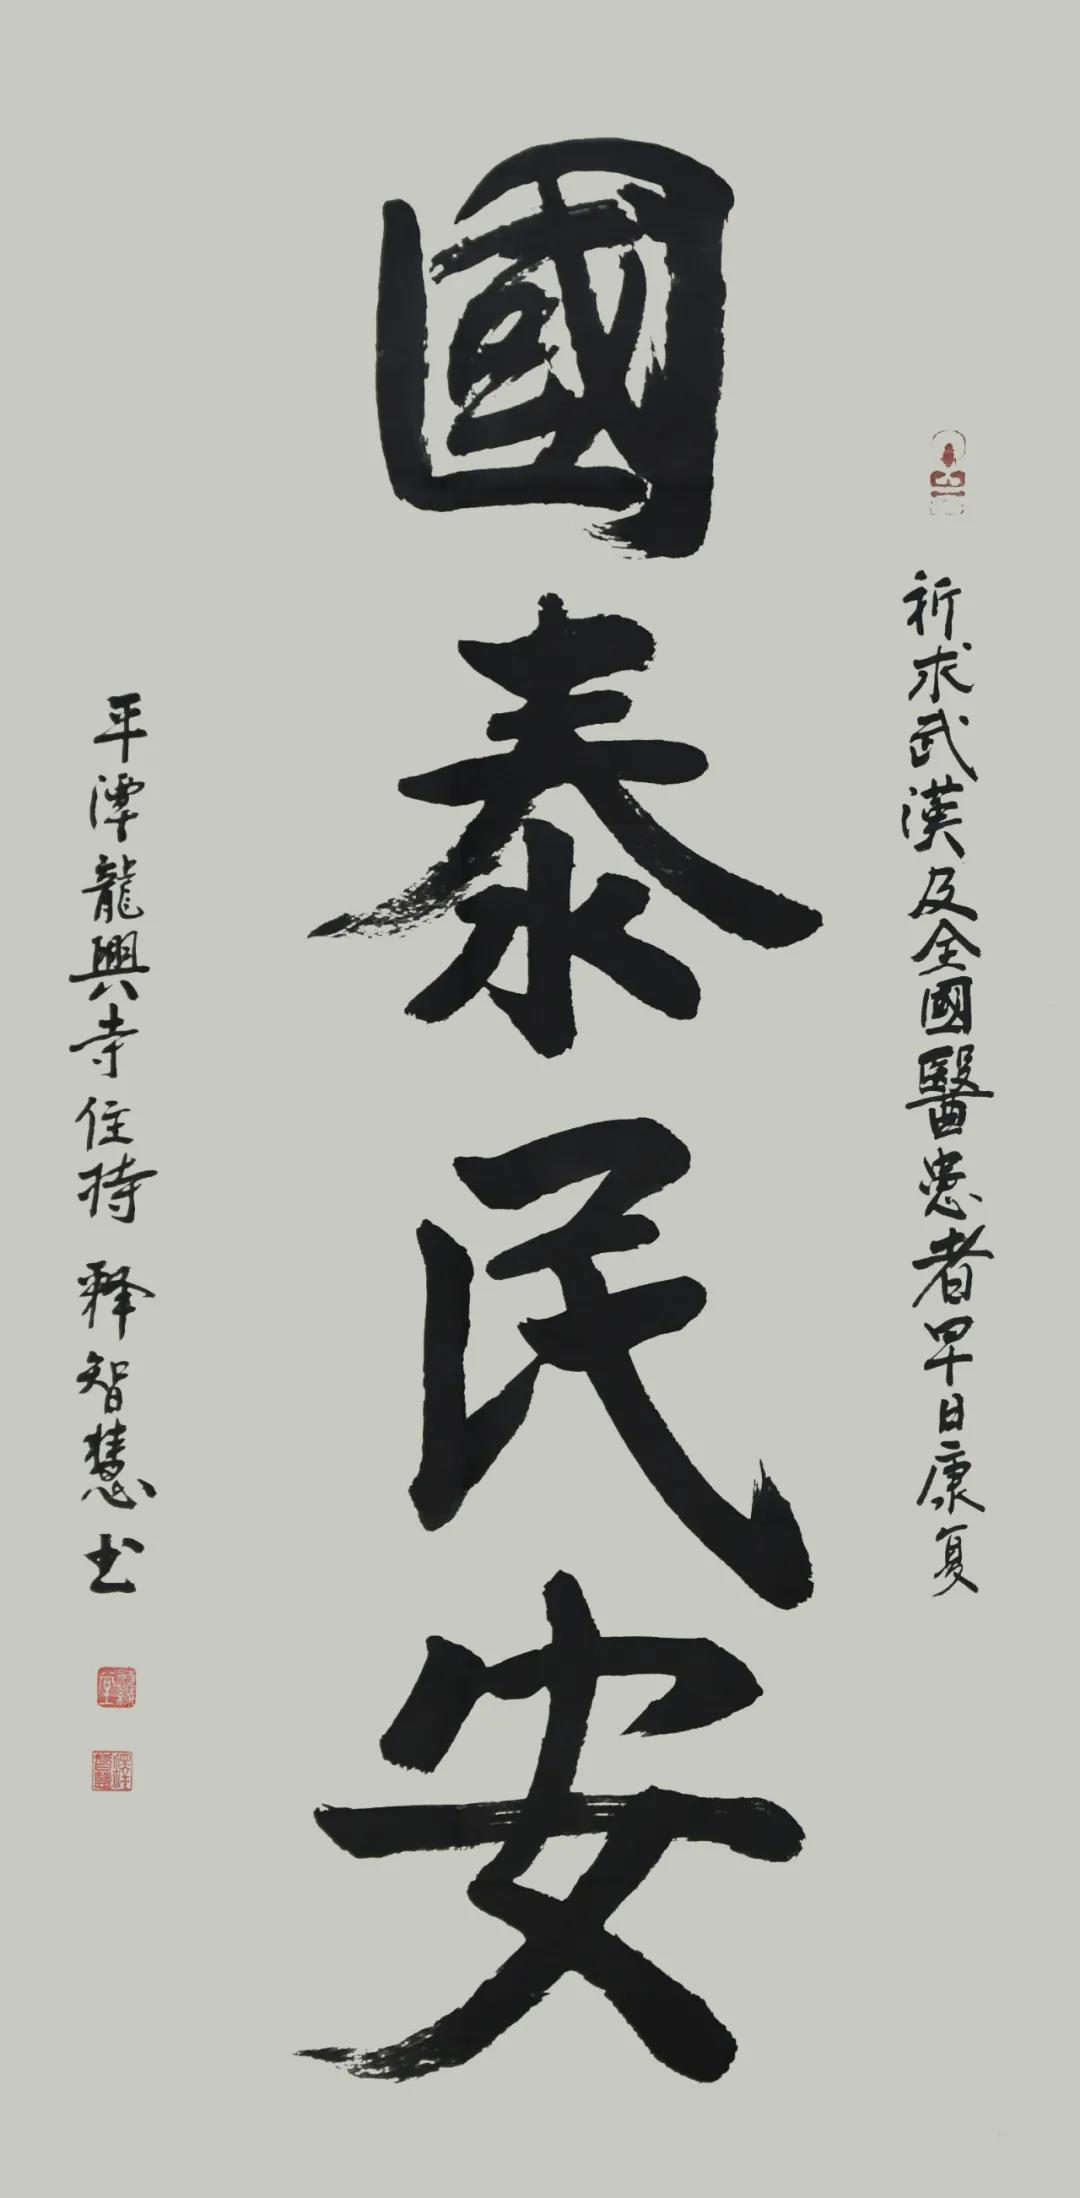 祈求武漢及全國醫患者早日康复
國泰民安
平潭龍興寺住持 释智慧书